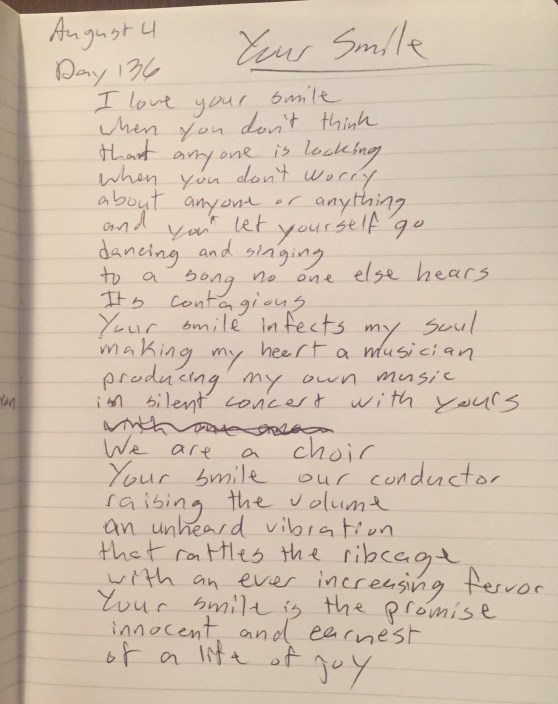 August 4
Your Smile
Day 136
I love your smile
when you don't think
that anyone is looking
when you don't worry
about anyone or anything
and you let yourself go
dancing and singing
to a song no one else hears
Its contagious
Your smile infects my soul
making my heart a musician
producing my own music
in silent concert with yours
We are a choir
Your smile our conductor
raising the volume
an unheard vibration
that rattles the ribcage
with an ever increasing fervor
Your smile is the promise
innocent and earnest
of a life of joy